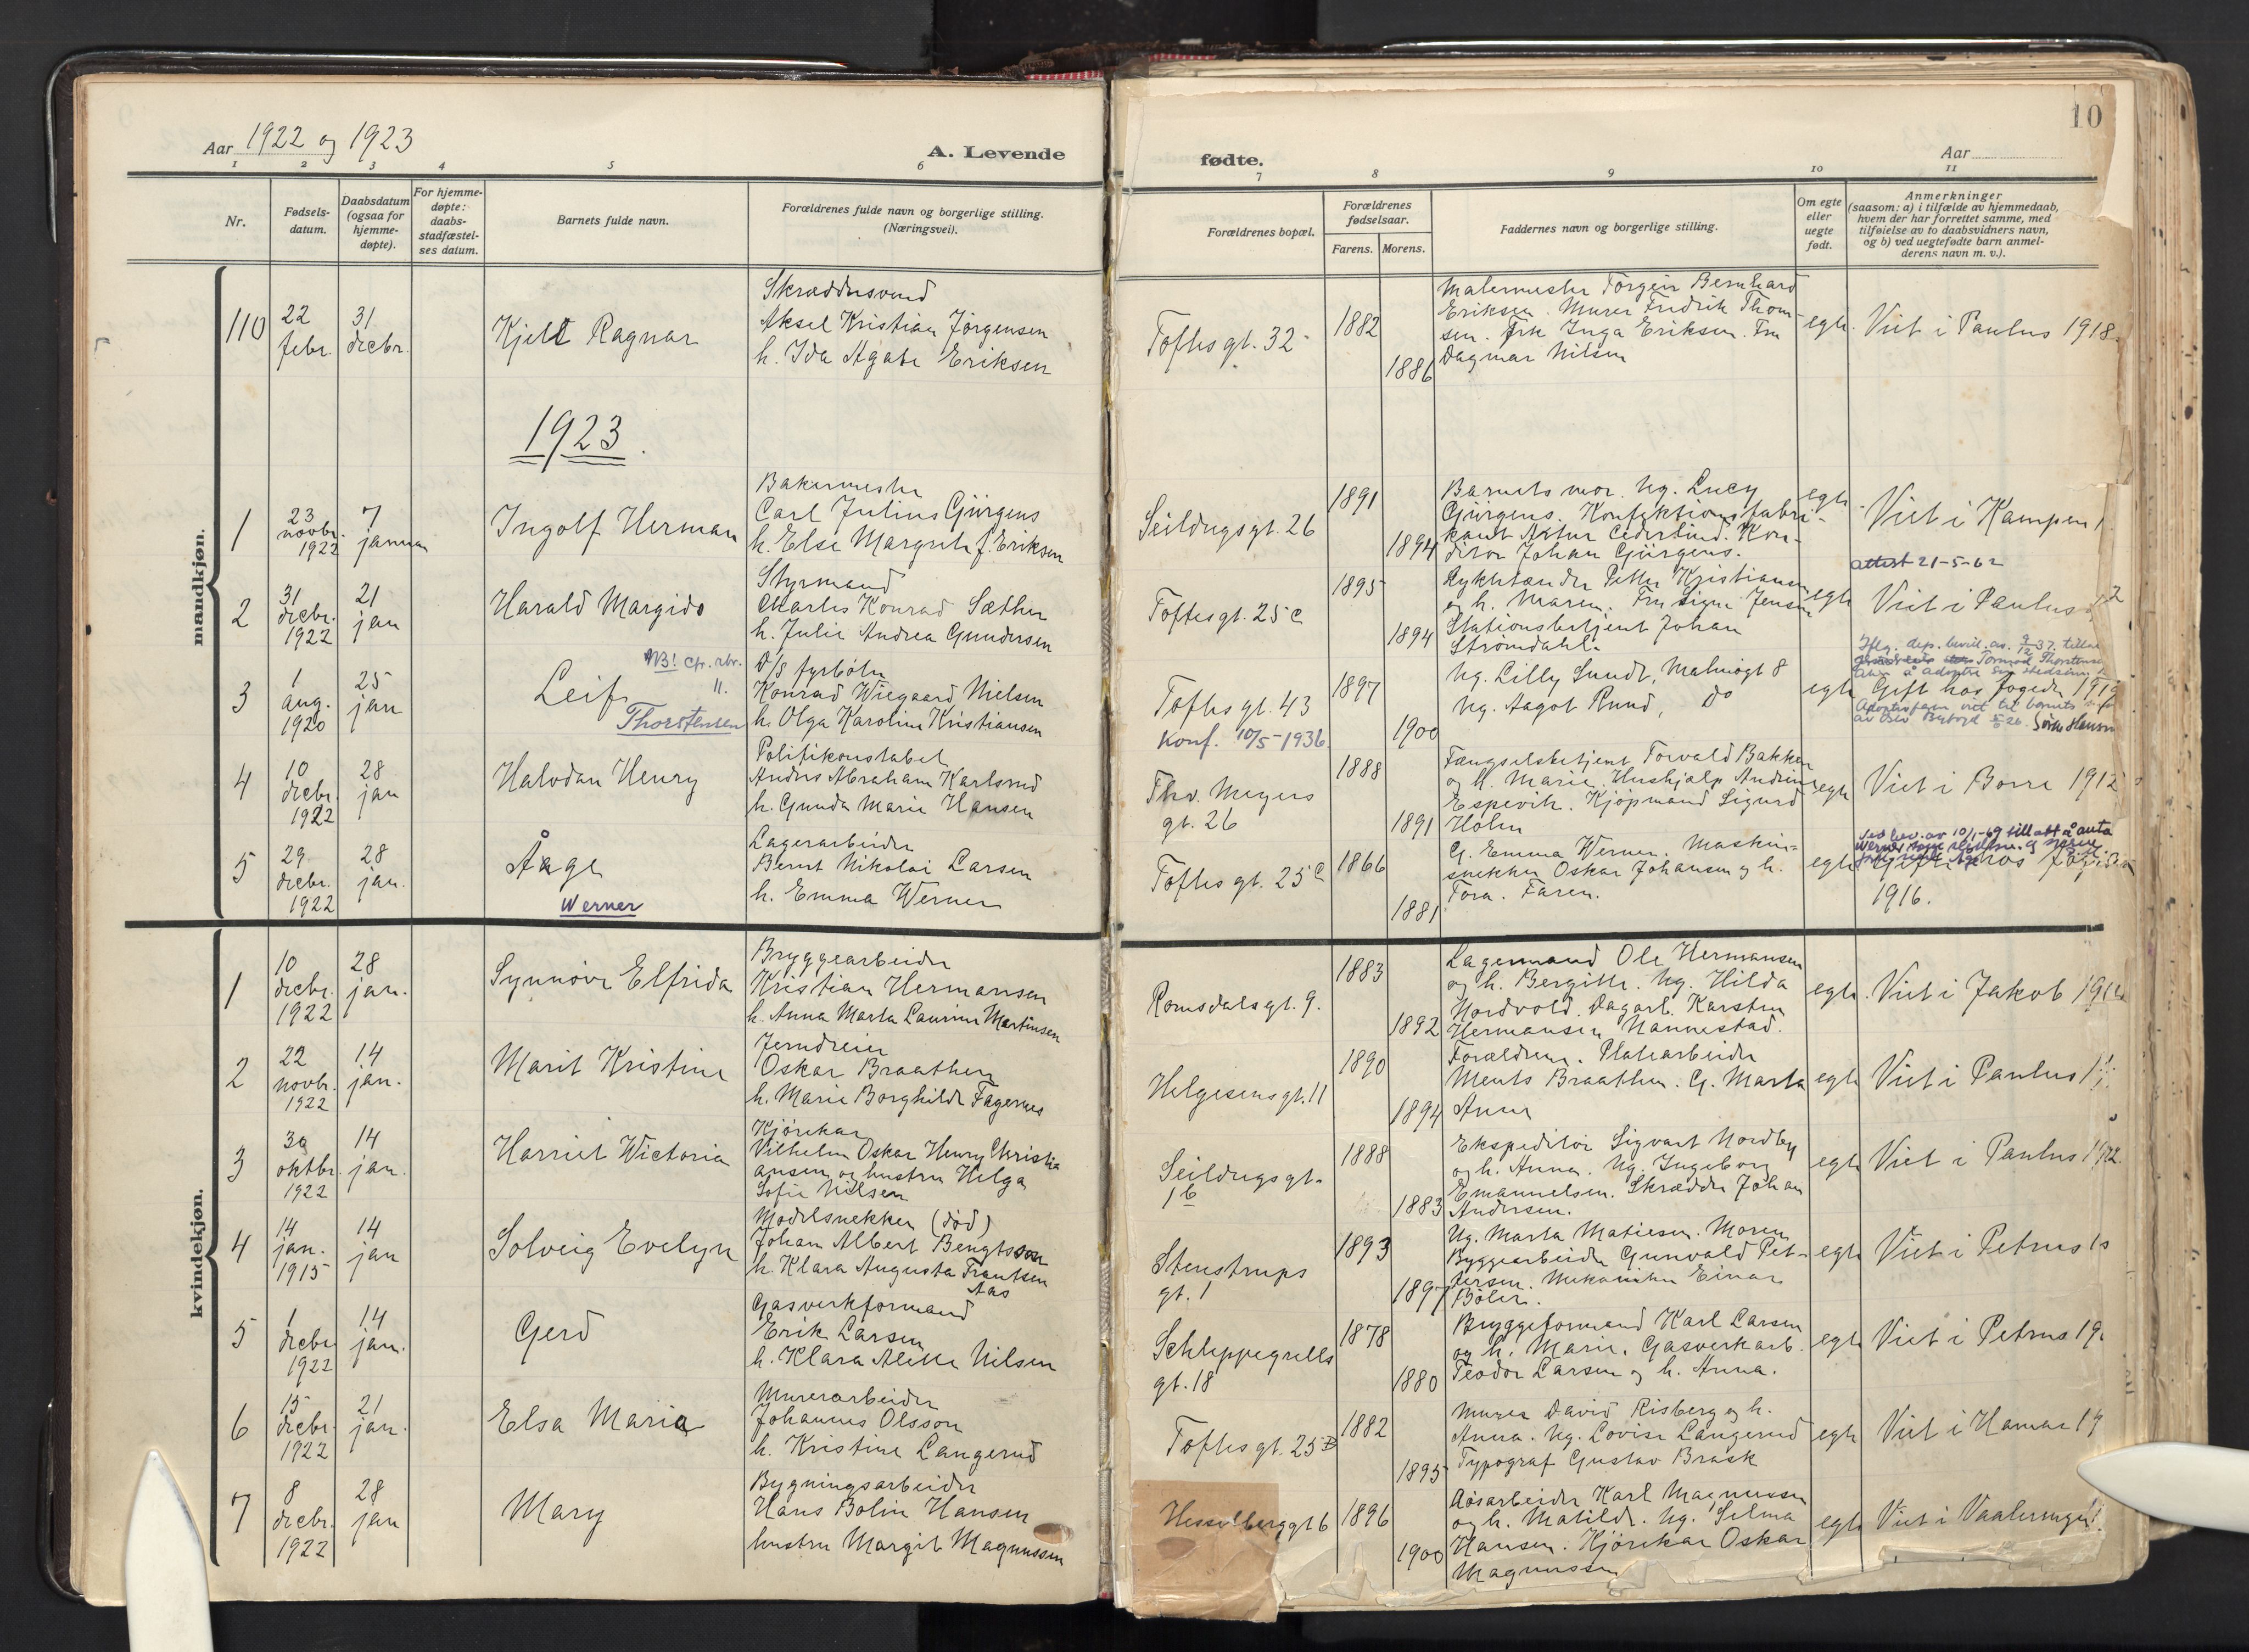 Aar 1922 og 1923
A. Levende
1 2 3 4 5 6
Nr.
Fødsels-
datum.
Daabsdatum
(ogsaa for
hjemme-
døpte).
For hjemme-
døpte:
daabs-
stadfæstel-
ses datum.
Barnets fulde navn.
Forældrenes fulde navn og borgerlige stilling.
(Næringsvei).
mandkjøn.
110
22
febr.
31
decbr.
Kjell Ragnar
Skræddersvend
Aksel Kristian Jørgensen
h. Ida Agate Eriksen
1923.
1
23
novbr.
1922
7
januar
Ingolf Herman
Bakermester
Carl Julius Gjürgens
h. Else Margrete f. Eriksen
2
31
decbr.
1922
21
jan
Harald Margido
Styrmand
Charles Konrad Sæther
h. Julie Andrea Gundersen
3
1
aug.
1920
25
jan
NB! cfr. rbr.
11.
Leif
Thorstensen
D/S fyrbøter
Konrad Wiegaard Nielsen
h. Olga Karoline Kristiansen
4
10
decbr.
1922
28
jan
Halvdan Henry
Politikonstabel
Anders Abraham Karlsrud
h. Gunda Marie Hansen
5
29
decbr.
1922
28
jan.
Åage
Werner
Lagerarbeider
Bernt Nikolai Larsen
h. Emma Werner
kvindekjøn.
1
10
decbr.
1922
28
jan.
Synnøve Elfrida
Bryggearbeider
Kristian Hermansen
h. Anna Marta Laurine Martinsen
2
22
novbr.
1922
14
jan.
Marit Kristine
Jerndreier
Oskar Braathen
h. Marie Borghilde Fagernes
3
30
oktbr.
1922
14
jan.
Harriet Wictoria
Kjørekar
Vilhelm Oskar Henry Christi
ansen og hustru Helga
Sofie Nilsen
4
14
jan.
1915
14
jan
Solveig Evelyn
Modelsnekker (død)
Johan Albert Bengtsson
h. Klara Augusta Frantsen
Aas
5
1
decbr.
1922
14
jan.
Gerd
Gasverkformand
Erik Larsen
h. Klara Alette Nilsen
6
15
decbr.
1922
21
jan.
Elsa Maria
Murerarbeider
Johannes Olsson
h. Kristine Langerud
7
8
decbr.
1922
28
jan
Mary
Bygningsarbeider
Hans Bolin Hansen
hustru Margit Magnussen
10
fødte.
Aar
7 8 9 10 11
Forældrenes bopæl.
Forældrenes
fødselsaar.
Farens. Morens.
Faddernes navn og borgerlige stilling.
Om egte
eller
uegte
født.
Anmerkninger
(saasom: a) i tilfælde av hjemmedaab,
hvem der har forrettet samme, med
tilføielse av to daabsvidners navn,
og b) ved uegtefødte barn anmel-
derens navn m. v.).
Toftes gt. 32
1882
1886
Malermester Torgeir Bernhard
Eriksen. Murer Fredrik Thom-
sen. Frk Inga Eriksen. Fru
Dagmar Nilsen
egte.
Viet i Paulus 1918.
Seildugsgt. 26
1891
1894
Barnets mor. Ug. Lucy
Gjürgens. Konfektionsfabri-
kant Artur Cederlund. Kon-
ditor Johan Gjürgens.
egte
Viet i Kampen 1
attest 21-5-62
Toftes gt. 25 C
1895
1894
Lyktetænder Petter Kristiansen
og h. Maren. Fru Signe Jensen
Stationsbetjent Johan
Strømdahl.
egte
Viet i Paulus
Toftes gt. 43
Konf. 10/5-1936.
1897
1900
Ug. Lilly Sundt, Malmøgt 8
Ug. Aagot Ruud, do
egte
Gift hos fogden 1919
Thv. Meyers
gt. 26
1888
1891
Fængselsbetjent Torvald Bakken
og h. Marie. Hushjælp Andrine
Espevik. Kjøpmand Sigurd
Holm
egte
Viet i Borre 1912
Toftes gt. 25 C
1866
1881
G. Emma Werner. Maskin-
snekker Oskar Johansen og h.
Tora. Faren.
egte
Gift hos fogden
1916.
Romsdalsgt. 9.
1883
1892
Lagermand Ole Hermansen
og h. Bergitte. Ug. Hilda
Nordvold. Dagarb. Karsten
Hermansen Nannestad.
egte.
Viet i Jakob 191
Helgesensgt. 11
1890
1894
Forældrene. Platearbeider
Ments Braathen. G. Marta
Anna
egte
Viet i Paulus 1
Seildugsgt.
16
1888
1883
Ekspeditør Sigvart Nordby
og h. Anna. Ug. Ingeborg
Emanuelsen. Skrædder Johan
Andersen.
egte
Viet i Paulus 1912.
Stenstrups
gt. 1
1893
1897
Ug. Marta Matiesen. Moren
Byggearbeider Gunvald Pet-
tersen. Mekaniker Einar
Böler.
egte
Viet i Petrus 1
Schleppegrells
gt. 18
1878
1880
Bryggeformand Karl Larsen
og h. Marie. Gasverkarb.
Teodor Larsen og h. Anna.
egte
Viet i Petrus 19
Toftes gt. 25 B
1882
1895
Murer David Risberg og h.
Anna. Ug. Lovise Langerud
Typograf Gustav Brask
egte
Viet i Hamar 19
Hesselberggt 6
1896
1900
Løsarbeider Karl Magnussen
og h. Matilde. Ug. Selma
Hansen. Kjørekar Oskar
Magnussen
egte
Viet i Vaalerengen